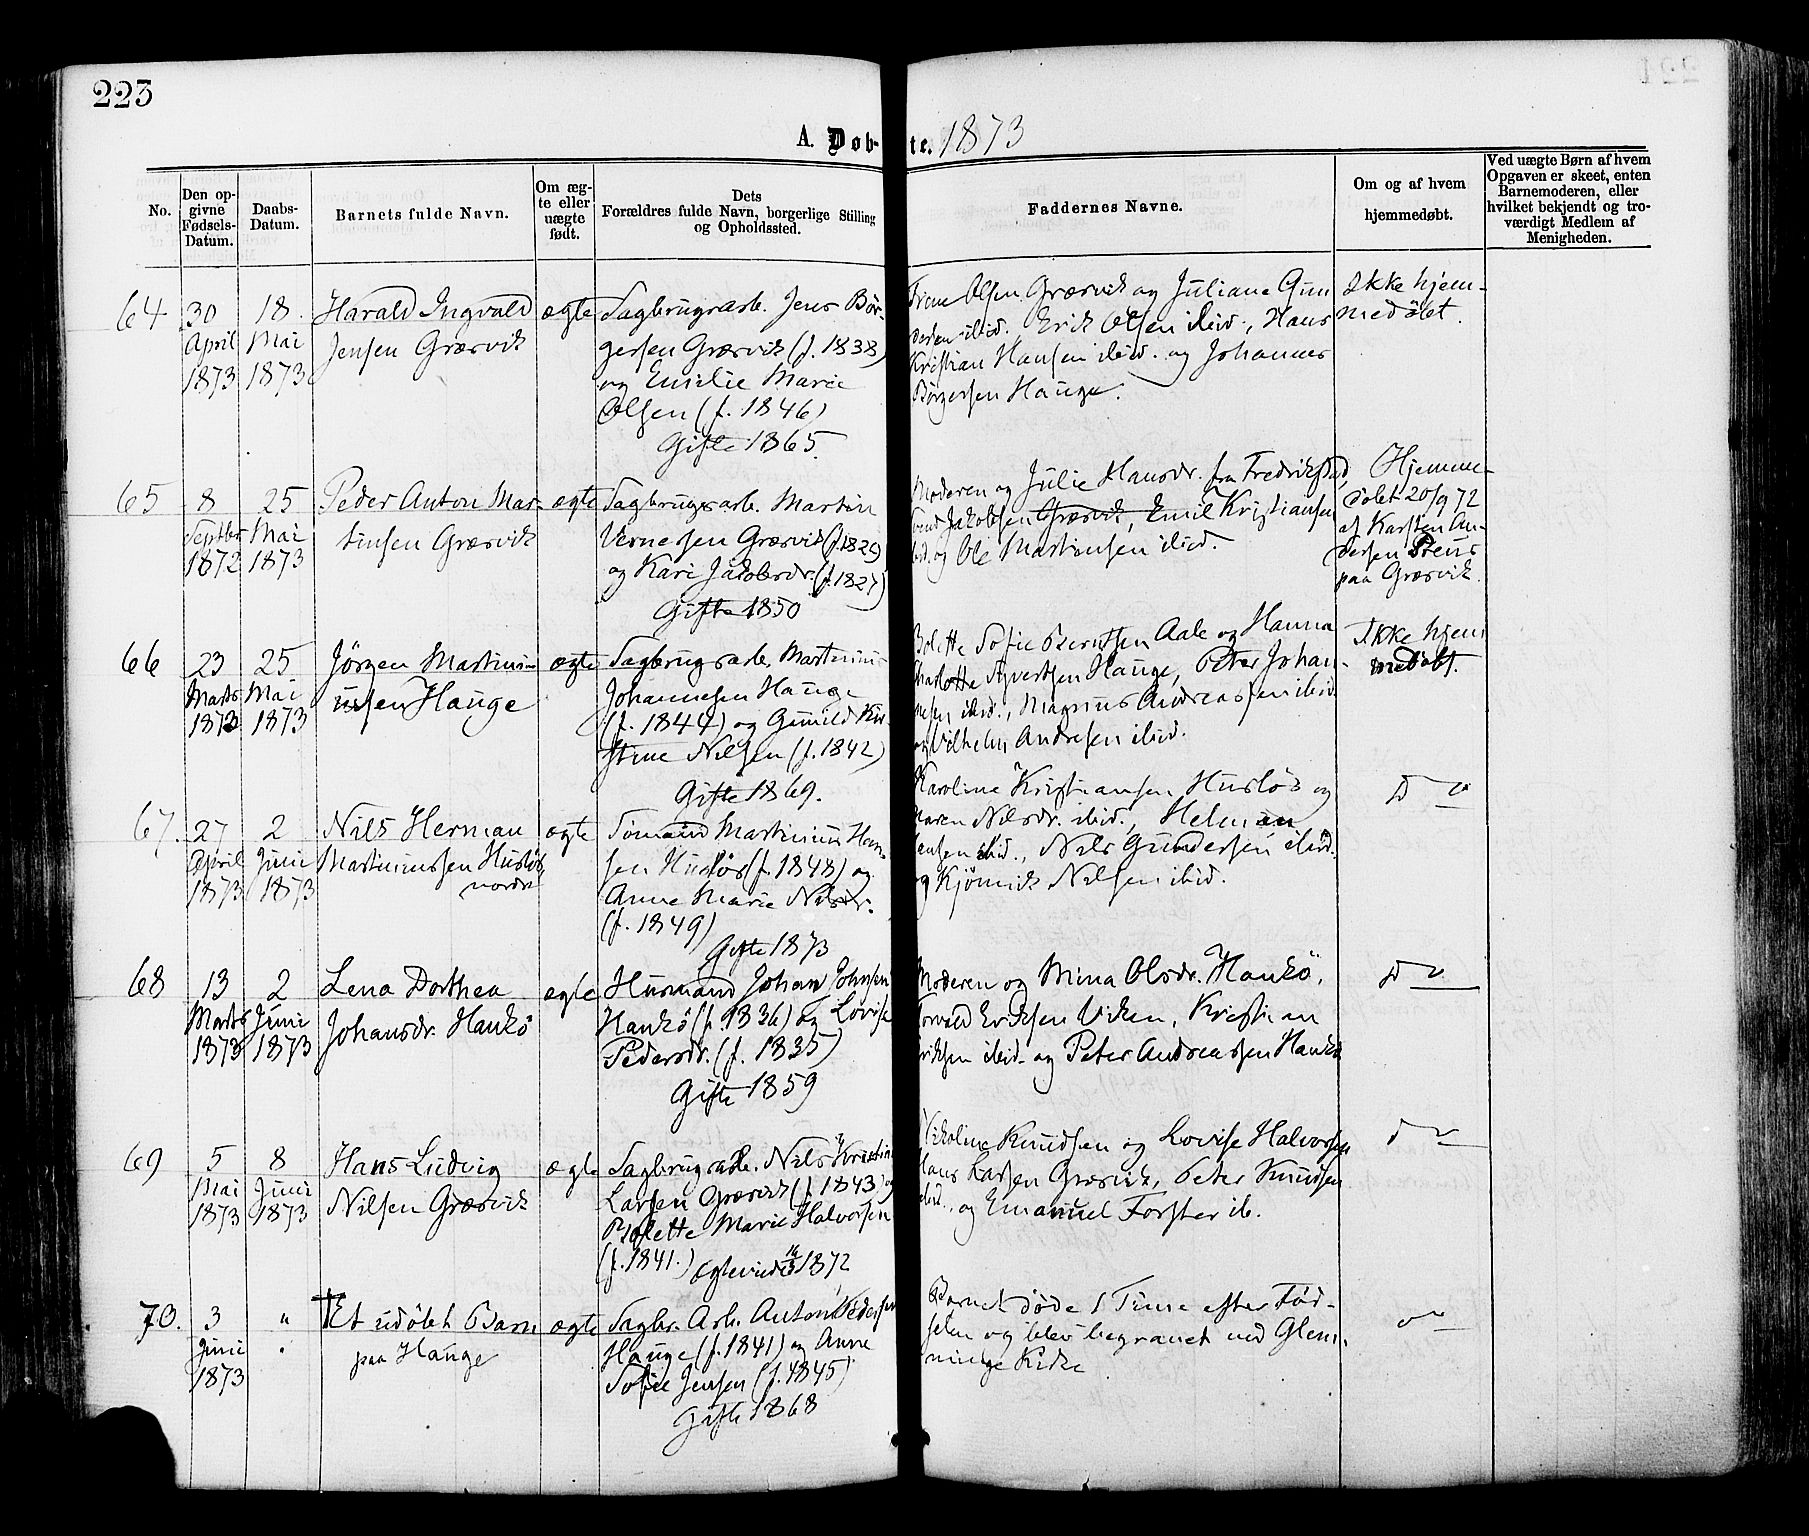 223
A. Døb-te. 1873
No.
Den op-
givne
Fødsels-
Datum.
Daabs-
Datum.
Barnets fulde Navn.
Om æg-
te eller
uægte
født.
Dets
Forældres fulde Navn, borgerlige Stilling
og Opholdssted.
Faddernes Navne.
Om og af hvem
hjemmedøbt.
Ved uægte Børn af hvem
Opgaven er skeet, enten
Barnemoderen, eller
hvilket bekjendt og tro-
værdigt Medlem af
Menigheden.
64
30
April
1873
18
Mai
1873
Harald Ingvald
Jensen Græsvik
ægte
Sagbrugsarb. Jens Bør-
gersen Græsvik (f. 1838)
og Emilie Marie
Olsen (f. 1846)
Gifte 1865.
Olsen Græsvik og Juliane Gun
dersen ibid. Erik Olsen ibid., Hans
Kristian Hansen ibid. og Johannes
Børgersen Hauge.
Ikke hjem-
medøbt.
65
8
Septbr
1872
25
Mai
1873
Peder Anton Mar-
tinsen Græsvik
ægte
Sagbrugsarb. Martin
Vernersen Græsvik (f. 1829)
og Kari Jakobsdr. (f. 1827)
Gifte 1850
Moderen og Julie Hansdr. fra Fredrikstad,
Svend Jakobsen Græsvik, Emil Kristiansen
ibid. og Ole Martinsen ibid.
Hjemme-
døbt 20/9 72
af Karsten An-
dersen
paa Græsvik.
66
23
Marts
1873
25
Mai
1873
Jörgen Martini-
ussen Hauge
ægte
Sagbrugsarb. Martinius
Johannesen Hauge
(f. 1844) og Gunild Kir-
stine Nilsen (f. 1842)
Gifte 1869.
Bolette Sofie Berntsen Aale og Hanna
Charlotte Syvertsen Hauge, Peter Johan-
nesen ibid., Magnus Andreassen ibid.
og Vilhelm Andresen ibid.
Ikke hjem
medøbt.
67.
27
April
1873
2
Juni
1873
Nils Herman
Martiniussen Husløs
nordre
ægte
Sømand Martinius Han-
sen Husløs (f. 1848) og
Anne Marie Nilsdr.
(f. 1849)
Gifte 1873
Karoline Kristiansen Husløs og
Maren Nilsdr. ibid., Helman
Hansen ibid., Nils Gundersen ibid.
og Kjønnik Nilsen ibid.
do
68
13
Marts
1873
2
Juni
1873
Lena Dorthea
Johansdr. Hankö
ægte
Husmand Johan Johnsen
Hankö (f. 1836) og Lovise
Pedersdr. (f. 1835)
Gifte 1859
Moderen og Mina Olsdr. Hankö,
Torvald Eriksen Viken, Kristian
Eriksen ibid. og Peter Andreassen Hankö
do
69
5
Mai
1873
8
Juni
1873
Hans Ludvig
Nilsen Græsvik
ægte
Sagbrugsarb. Nils Kristian
Larsen Græsvik (f. 1843) og
Bolette Marie Halvorsen
(f. 1841.) Ægteviede 1872
Nikoline Knudsen og Lovise Halvorsen
Hans Larsen Græsvik, Peter Knudsen
ibid., og Emanuel Forster ib.
do
70.
3
Juni
1873
"
"
† Et udøbt Barn
paa Hauge
ægte
Sagbr. Arb. Anton Pedersen
Hauge (f. 1841) og Anne
Sofie Jensen (f. 1845)
Gifte 1868
Barnet døde 1 Time efter Fød-
selen og blev begravet ved Glem-
minge Kirke